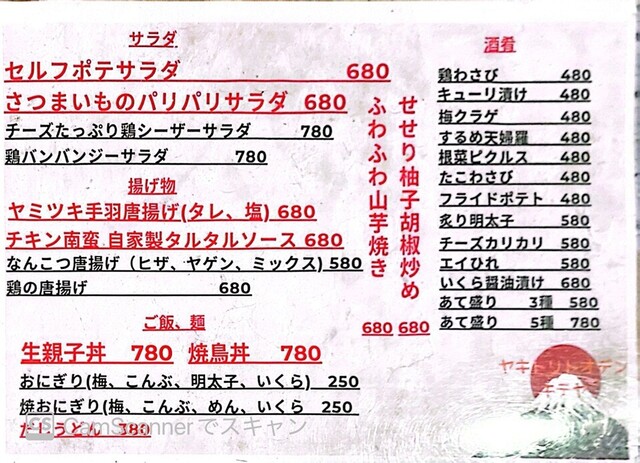 サラダ
セルフポテサラダ 680
さつまいものパリパリサラダ 680
チーズたっぷり鶏シーザーサラダ 780
鶏バンバンジーサラダ 780
揚げ物
ヤミツキ手羽唐揚げ(タレ、塩) 680
チキン南蛮 自家製タルタルソース 680
なんこつ唐揚げ（ヒザ、ヤゲン、ミックス) 580
鶏の唐揚げ 680
ご飯、麺
生親子丼 780 焼鳥丼 780
おにぎり(梅、こんぶ、明太子、いくら) 250
焼おにぎり(梅、こんぶ、めん、いくら 250
だしうどん 380
せせり柚子胡椒炒め 680
ふわふわ山芋焼き 680
酒肴
鶏わさび 480
キューリ漬け 480
梅クラゲ 480
するめ天婦羅 480
根菜ピクルス 480
たこわさび 480
フライドポテト 480
炙り明太子 580
チーズカリカリ 580
エイひれ 580
いくら醤油漬け 680
あて盛り 3種 580
あて盛り 5種 780
ヤキトリトオデン
CS CamScanner でスキャン